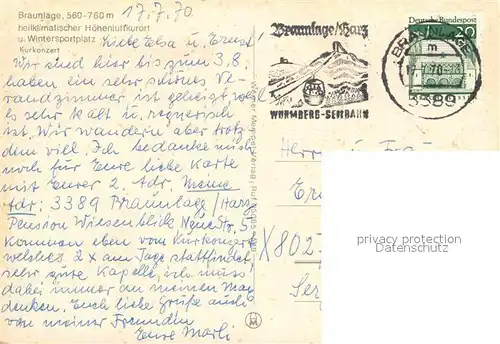 Braunlage, 560-760 m
heilklimatischer Höhenluftkurort
u. Wintersportplatz
Kurkonzert
17.7.70
Liebe Elsa u. Ernst!
Wir sind hier bis zum 3.8.
haben ein sehr schönes Ve-
randzimmer ist geheizt weil
es sehr kalt u. regnerisch
ist. Wir wandern aber trotz
dem viel. Ich bedanke mich
noch für Eure liebe Karte
mit Eurer 2. Adr. Meine
Adr: 3389 Braunlage/Harz
Pension Wiesenblick Neue Str. 5
kommen eben vom Kurkonzert
welches 2 x am Tage stattfindet
sehr gute Kapelle, ich muss
dabei immer an meinen
denken. Euch liebe Grüße auch
von meiner Freundin
Eure Marli
Braunlage/Harz
WURMBERG-SEILBAHN
Deutsche Bundespost
20
BRAUNLAGE
m
17.7.70
3389
Herrn u. Frau
X802
privacy protection
Datenschutz